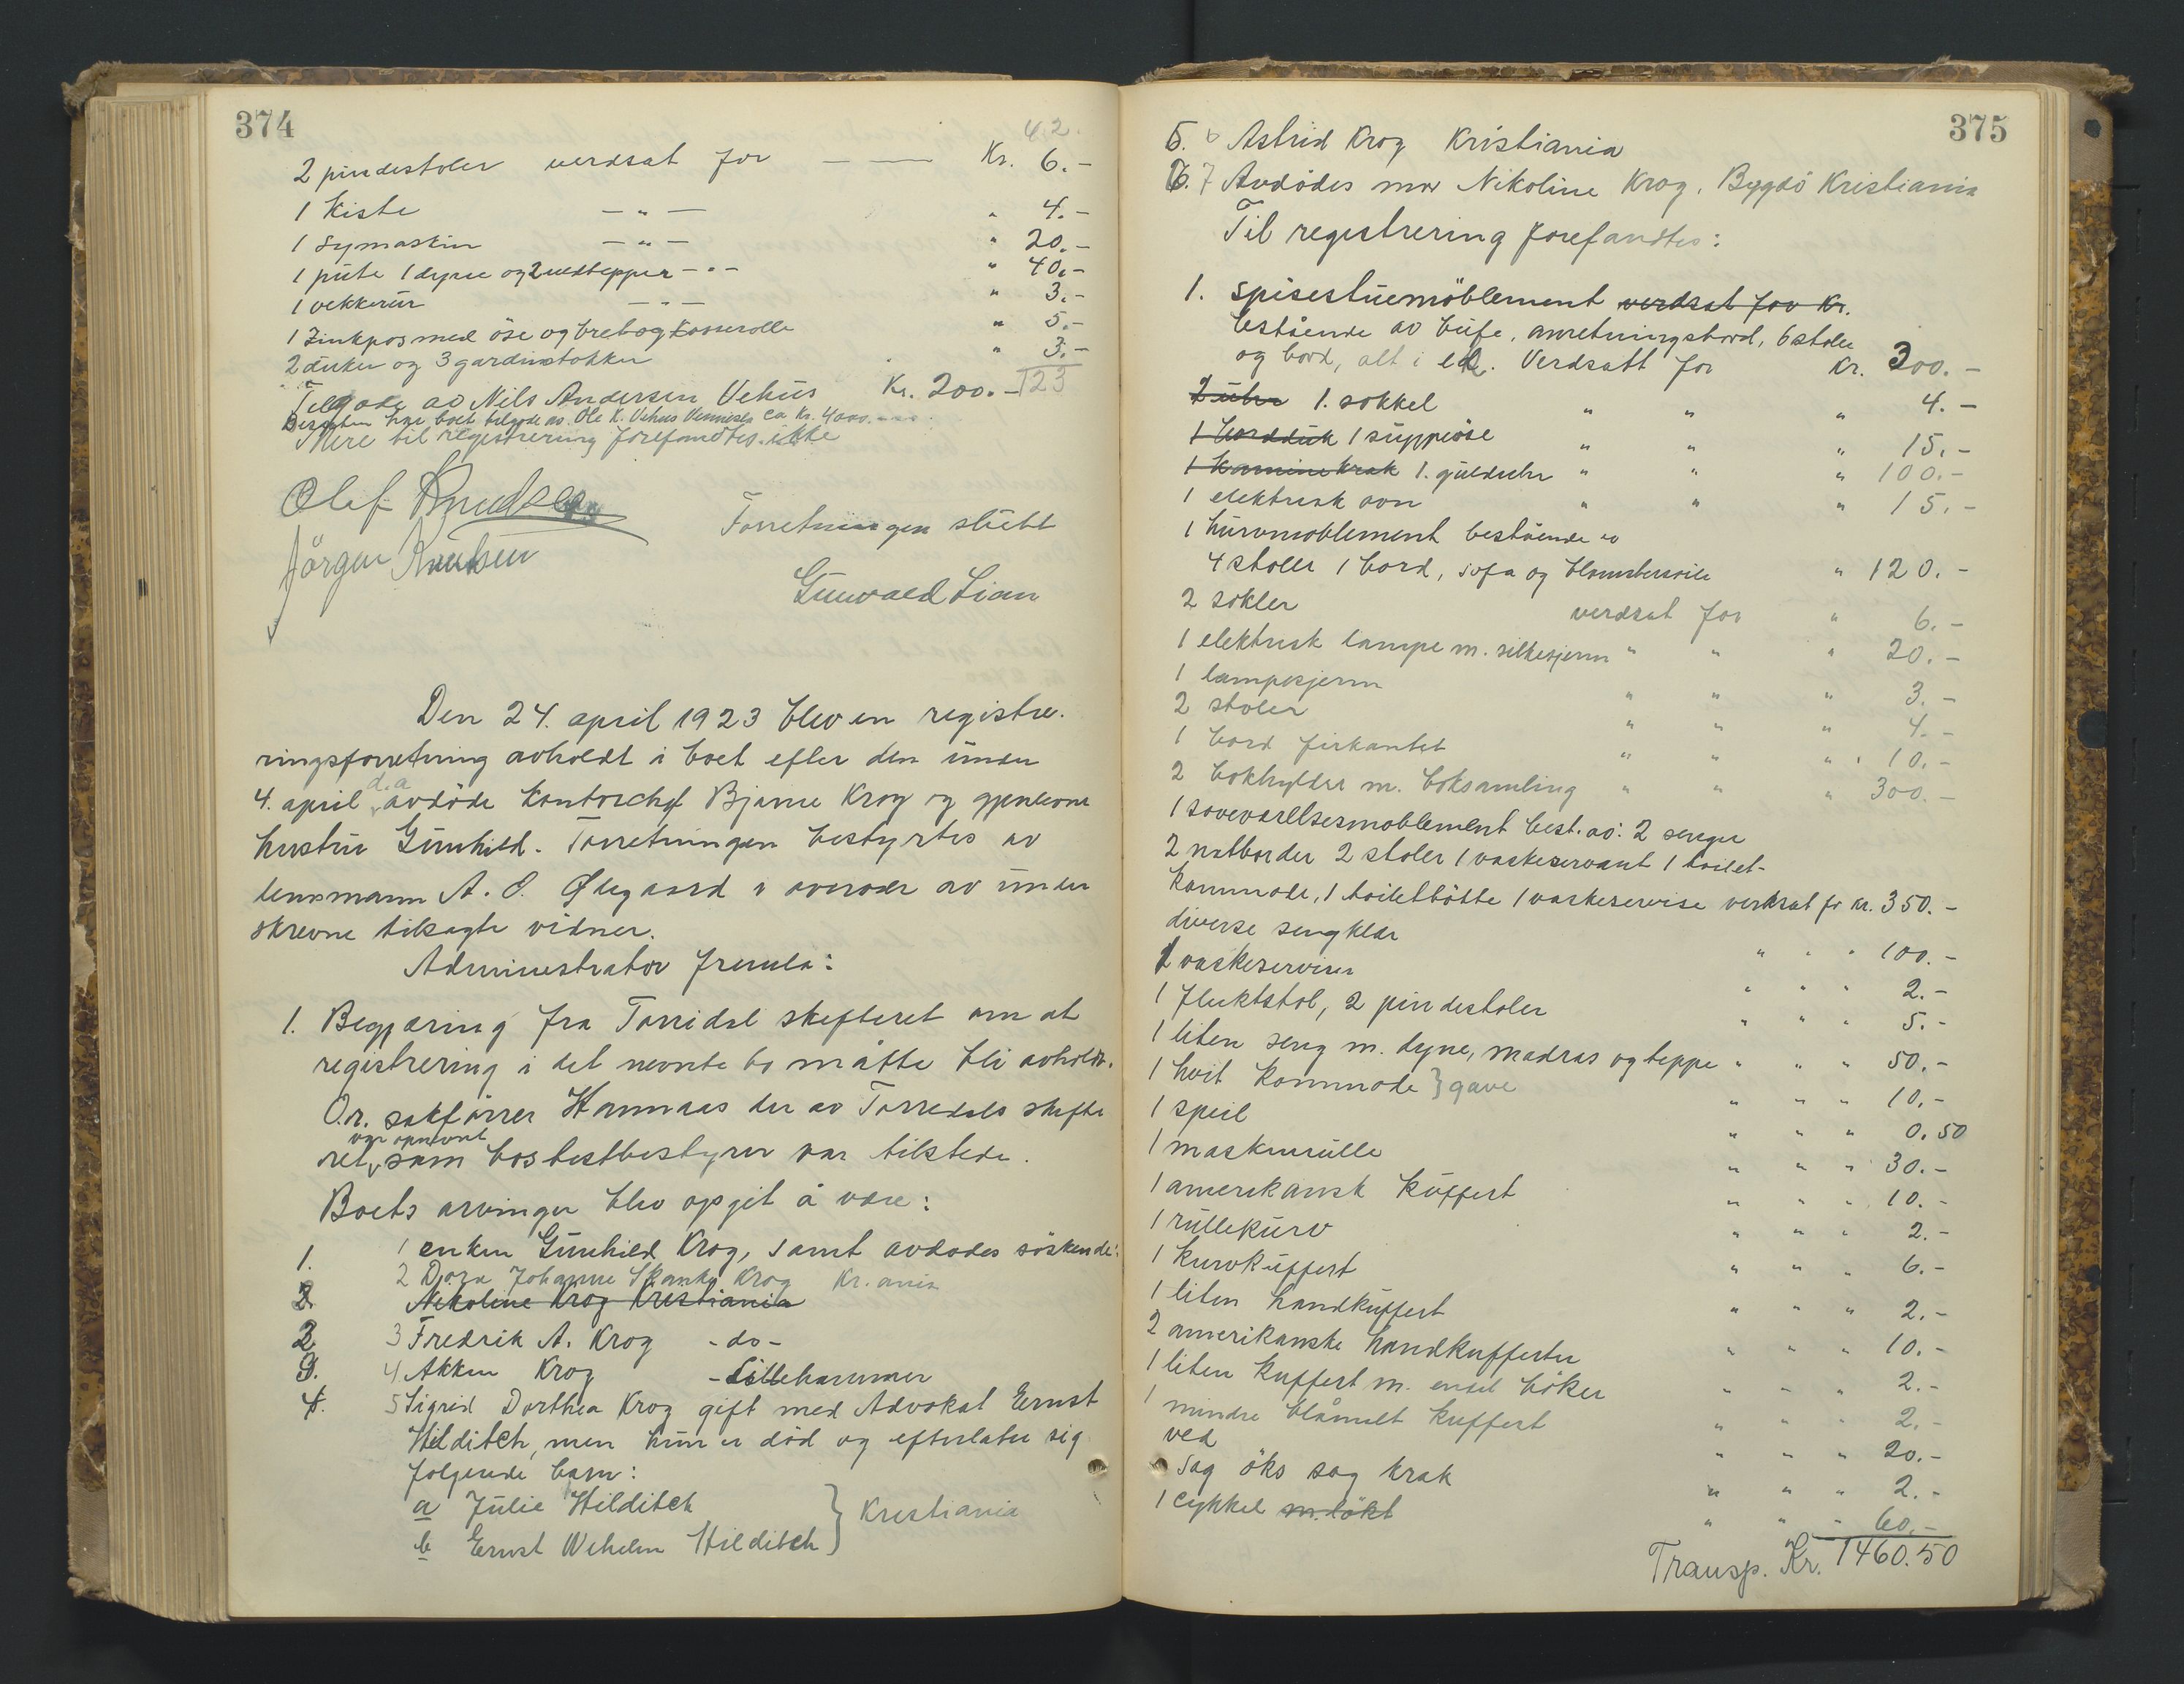 374
42.
2 pindestoler verdsat for — — Kr. 6.-
1 Kiste — " — " 4.-
1 Symaskin — " — " 20.-
1 pute 1 dyne og 2 uldtepper — " — " 40.-
1 vekkerur — " — " 3.-
1 Zinkpos med öse og bret og Kasserolle " 5.-
2 duker og 3 gardinstokker " 3.-
Tilgode av Nils Andersen Vehus Kr. 200.- 123
Desuten har boet tilgode av Ole K. Vehus Vennesla ca kr. 4000.--
Mere til registrering forefandtes ikke
Olaf Knudsen
Forretningen slutt
Jörgen Knutsen
Gunvald Lian
Den 24. april 1923 blev en registre-
ringsforretning avholdt i boet efter den under
4. april d.a avdöde kontorchef Bjarne Krog og gjenlevne
hustru Gunhild. Forretningen bestyrtes av
lensmann A. O. Øhgaard i overvær av under
skrevne tilsagte vidner.
Administrator fremla:
1. Begjæring fra Torridal skifteret om at
registrering i det nevnte bo måtte bli avholdt.
O.r. sakförer Hannaas der av Torredals skifte
ret, var opnevnt som bostestbestyrer var tilstede.
Boets arvinger blev opgit å være:
1. 1 enken Gunhild Krog, samt avdödes söskende:
2 Djøra Johanne Skanke Krog Kr.ania
2. Nikoline Krog Kristiania
2 3 Fredrik A. Krog - do -
3. 4 Akken Krog - Lillehammer
4. 5 Sigrid Dorthea Krog gift med Advokat Ernst
Hilditch, men hun er död og efterlater sig
folgende barn:
a Julie Hilditch
b Ernst Wilhelm Hilditch } Kristiania
375
5. 6 Astrid Krog Kristiania
6. 7 Avdödes mor Nikoline Krog, Bygdö Kristiania
Til registrering forefandtes:
1. spisestuemöblement verdsat for Kr.
bestående av bufe, anretningsbord, 6 stoler
og bord, alt i eik. Verdsatt for Kr. 300.-
2 uhr 1. sokkel " " " 4.-
1 bordduk 1 suppeöse " " " 15.-
1 kaminekrak 1. gulduhr " " " 100.-
1 elektrisk ovn " " " 15.-
1 kurvmoblement bestående av
4 stoler 1 bord, sofa og blomstersöile " 120.-
2 sokler verdsat for " 6.-
1 elektrisk lampe m. silkesjerm " " " 20.-
1 lampesjerm " " " 3.-
2 stoler " " " 4.-
1 bord firkantet " " " 10.-
2 bokhylder m. boksamling " " " 300.-
1 soveværelsesmoblement best. av: 2 senger
2 natborder 2 stoler 1 vaskeservant 1 toilet-
kommode, 1 toiletbötte 1 vaskeservise verdsat for kr. 350.-
diverse sengklær " " " 100.-
1 vaskeserviser " " " 2.-
1 fluktstol, 2 pindestoler " " " 5.-
1 liten seng m. dyne, madras og teppe " " " 50.-
1 hvit kommode } gave " " " 10.-
1 speil " " " 0.50
1 maskinrulle " " " 30.-
1 amerikansk kuffert " " " 10.-
1 rullekurv " " " 2.-
1 kurvkuffert " " " 6.-
1 liten handkuffert " " " 2.-
2 amerikanske handkufferter " " " 10.-
1 liten kuffert m. endel böker " " " 2.-
1 mindre blåmalt kuffert " " " 2.-
ved " " " 20.-
1 sag öks sag krak " " " 2.-
1 cykkel m. lökt " " " 60.-
Transp. Kr. 1460.50